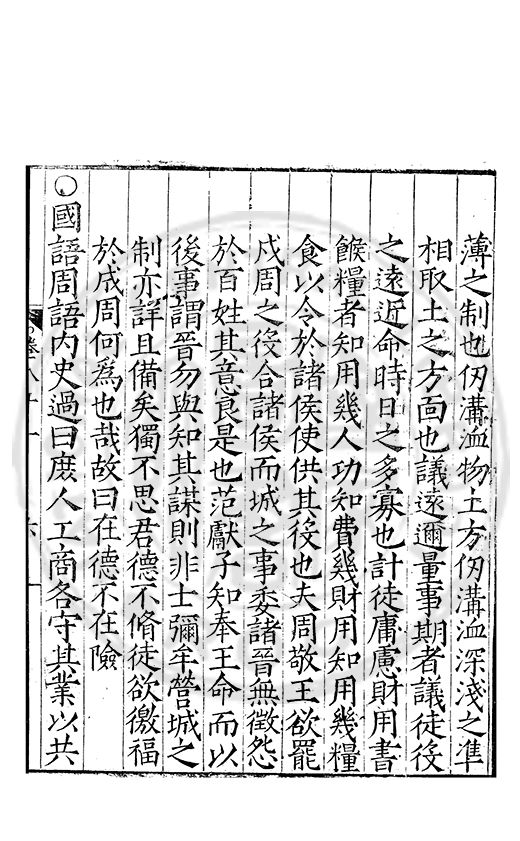 薄之制也仞溝洫物土方仞溝洫深淺之凖
相取土之方靣也議逺邇量事期者議徒役
之逺近命時日之多寡也計徒庸慮財用書
餱糧者知用幾人功知費幾財用知用幾糧
食以令於諸侯使供其役也夫周敬王欲罷
戍周之役合諸侯而城之事委諸晉無徴怨
於百姓其意良是也范獻子知奉王命而以
後事謂晉勿與知其謀則非士彌牟營城之
制亦詳且備矣獨不思君德不脩徒欲徼福
於成周何為也哉故曰在德不在險
○國語周語内史過曰庶人工商各守其業以共
卷八十一
六